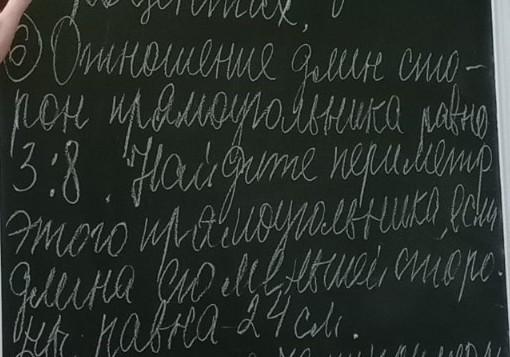 ⑥ Отношение длин сто-
рон прямоугольника равно
3:8. Найдите периметр
этого прямоугольника, если
длина его меньшей сторо-
ны равна 24 см.